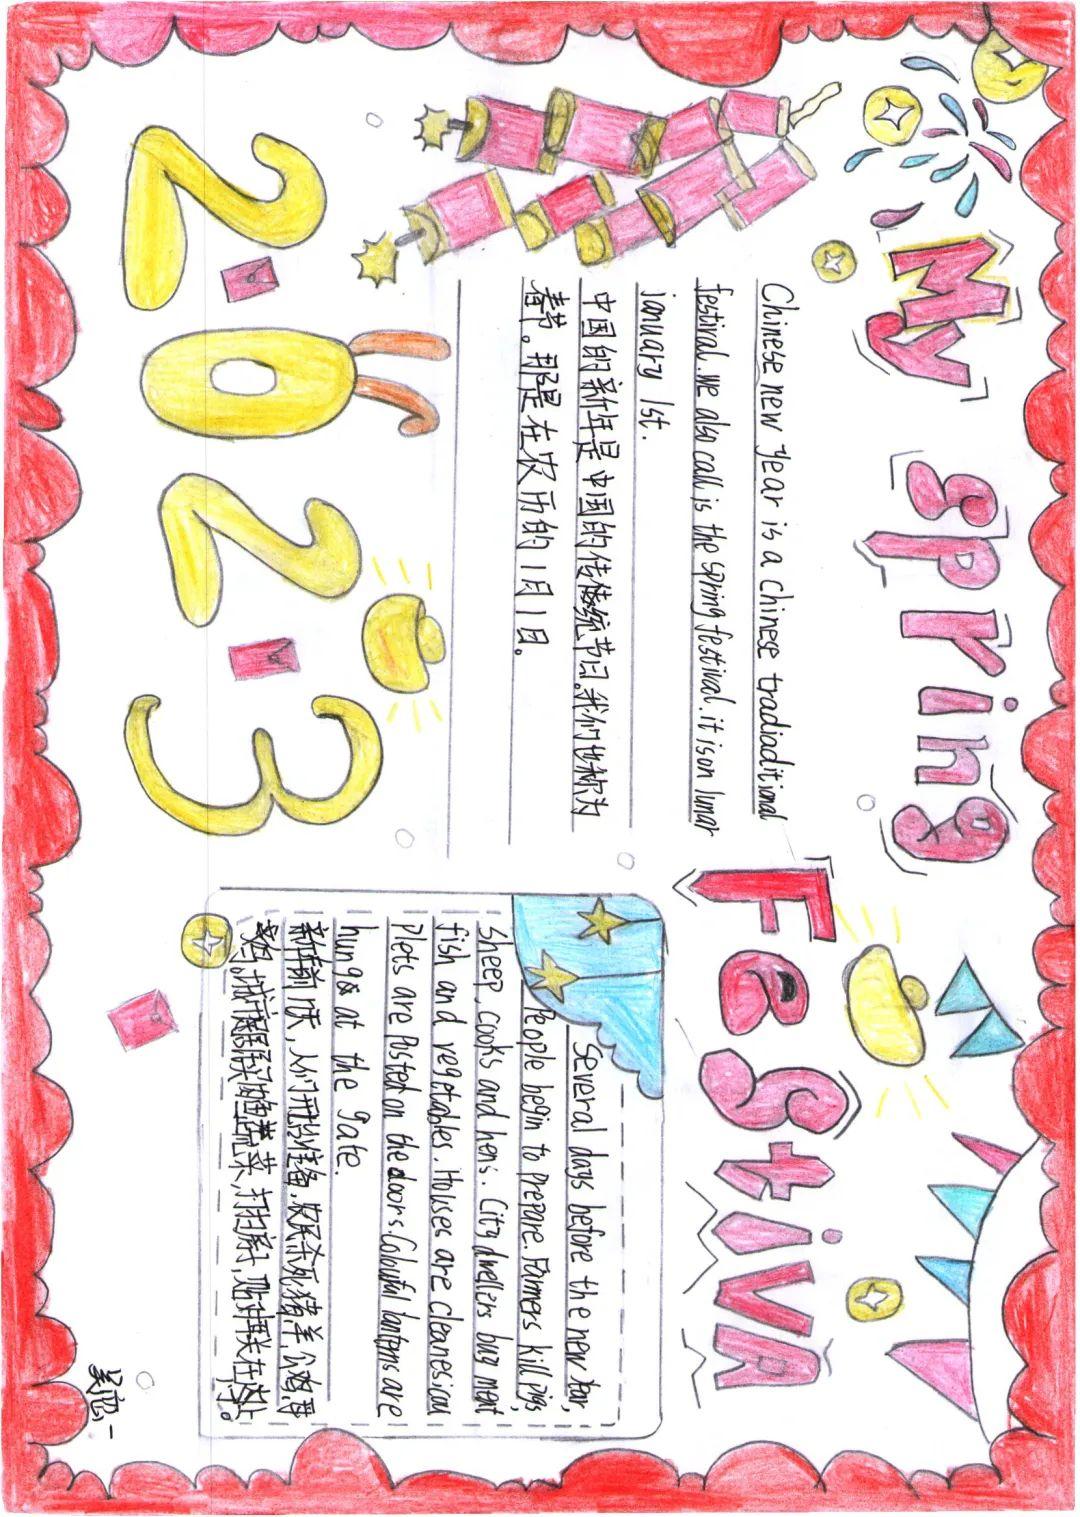 My spring
FeStiVA
Chinese new year is a chinese tradiaditional
festival. we also call is the spring festival. it is on lunar
january 1st.
中国的新年是中国的传统节日。我们也称为
春节。那是在农历的1月1日。
2023
Several days before the new year,
People begin to prepare. Farmers kill pigs,
sheep, cooks and hens. City dwellers buy meat
fish and vegetables. Houses are cleanesicou
Plets are Posted on the doors. Colouful lanterns are
hung at the gate.
新年前 人们开始准备,农民杀死猪,羊,公鸡,母
鸡。城市居民买鱼蔬菜,打扫房子,贴对联在
吴恋一